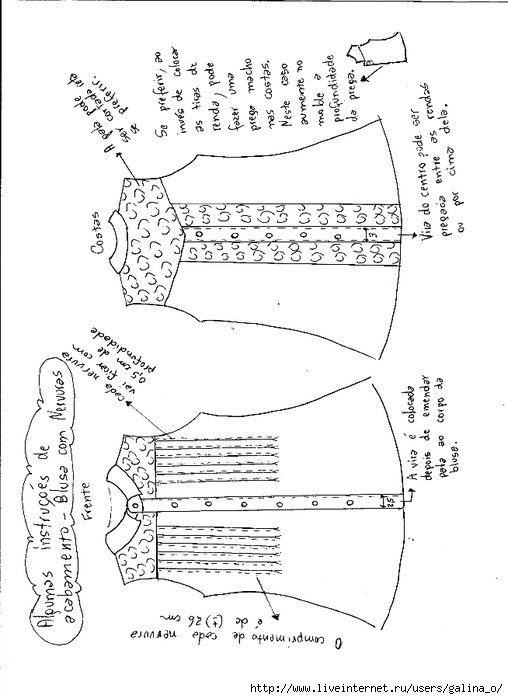 Algumas instruções de
acabamento - Blusa com Nervuras
Frente
cada nervura
vai ficar com
0,5 cm de
profundidade
O comprimento de cada nervura
é de (±) 26 cm
2,5
A vira é colocada
depois de emendar
pala ao corpo da
blusa.
Costas
A
pala pode
ser cortada reta
se
preferir.
Se preferir, ao
invés de colocar
as tiras de
renda, pode
fazer uma
prega macho
nas costas.
Neste caso
aumente no
molde a
profundidade
da prega.
3
Vira do centro pode ser
pregada entre as rendas
ou por cima dela.
http://www.liveinternet.ru/users/galina_o/